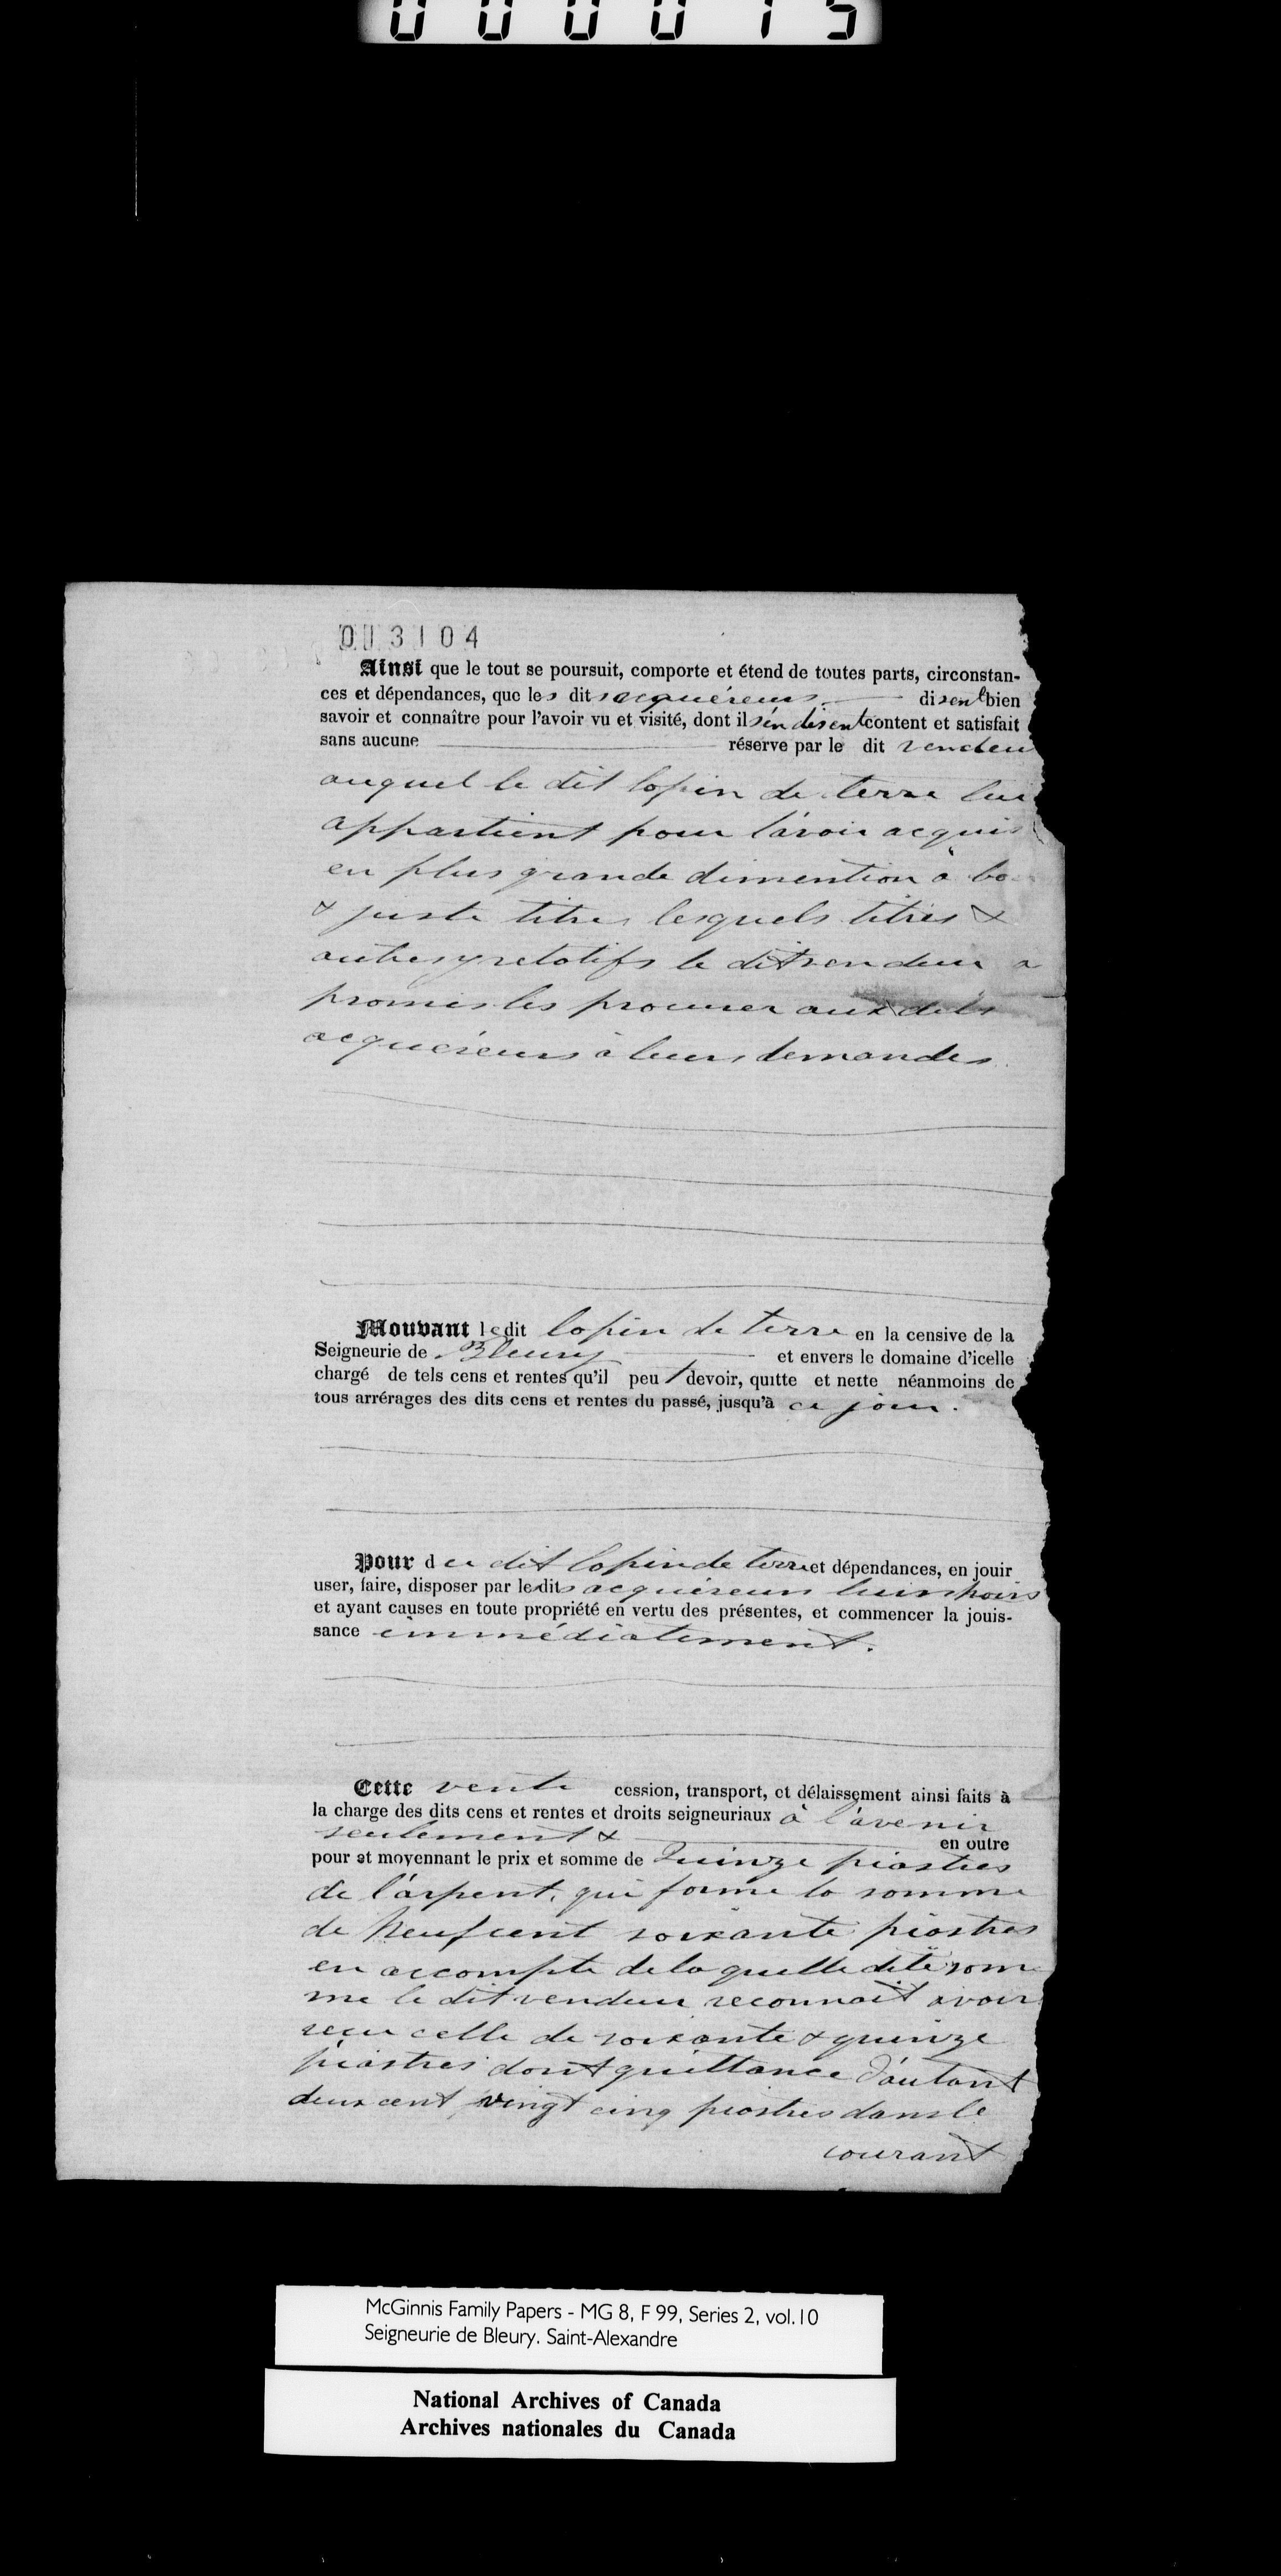 000015
013104
Ainsi que le tout se poursuit, comporte et étend de toutes parts, circonstan-
ces et dépendances, que les dits acquéreurs disent bien
savoir et connaître pour l'avoir vu et visité, dont ils s'en disent content et satisfait
sans aucune réserve par le dit vendeu
auquel le dit lopin de terre lui
appartient pour l'avoir acquis
en plus grande dimention à bo
& juste titre, lesquels titres &
autres y relatifs le dit vendeur a
promis les procurer aux dits
acquéreurs à leurs demandes.
Mouvant le dit lopin de terre en la censive de la
Seigneurie de Bleury et envers le domaine d'icelle
chargé de tels cens et rentes qu'il peut devoir, quitte et nette néanmoins de
tous arrérages des dits cens et rentes du passé, jusqu'à ce jour.
Pour du dit lopin de terre et dépendances, en jouir
user, faire, disposer par les dits acquéreurs leurs hoirs
et ayant causes en toute propriété en vertu des présentes, et commencer la jouis-
sance immédiatement.
Cette vente cession, transport, et délaissement ainsi faits à
la charge des dits cens et rentes et droits seigneuriaux à l'avenir
seulement & en outre
pour et moyennant le prix et somme de Quinze piastres
de l'arpent, qui forme la somme
de Neuf cent soixante piastres
en accompte de laquelle dite som
me le dit vendeur reconnait avoir
reçu celle de soixante & quinze
piastres dont quittance d'autant
deux cent vingt cinq piastres dans le
courant
McGinnis Family Papers - MG 8, F 99, Series 2, vol.10
Seigneurie de Bleury. Saint-Alexandre
National Archives of Canada
Archives nationales du Canada